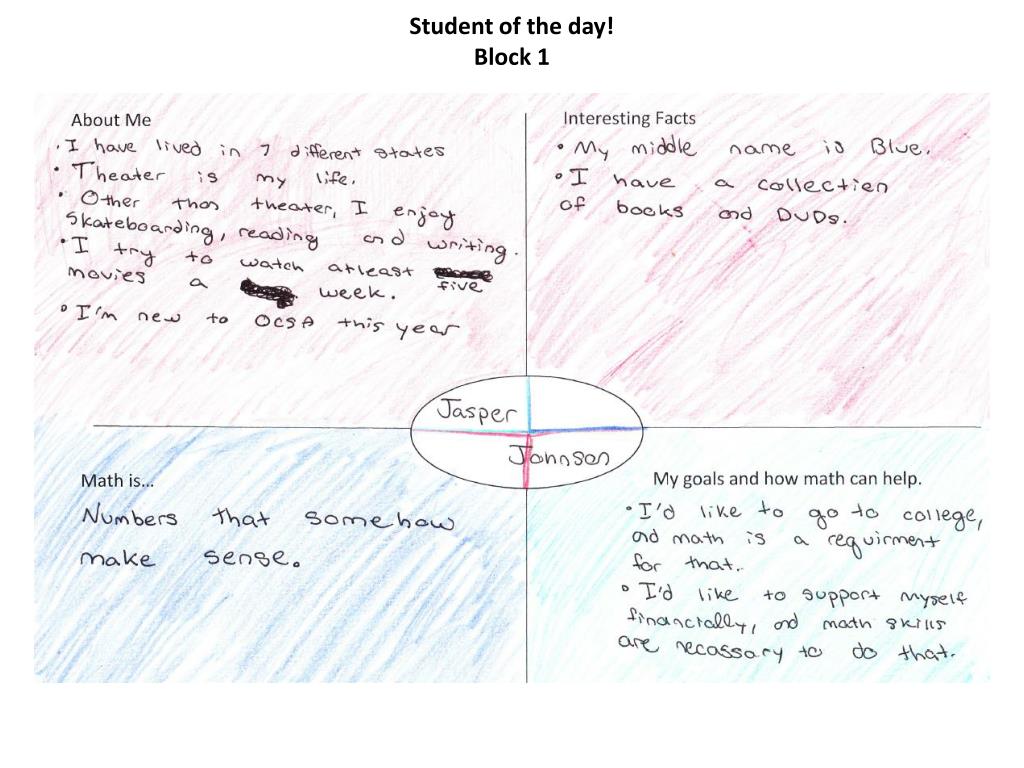 Student of the day!
Block 1
About Me
• I have lived in 7 different states
• Theater is my life.
• Other than theater, I enjoy
skateboarding, reading and writing.
• I try to watch atleast
five
movies a week.
• I'm new to OCSA this year
Interesting Facts
• My middle name is Blue.
• I have a collection
of books and DVDs.
Jasper
Johnson
Math is...
Numbers that somehow
make sense.
My goals and how math can help.
• I'd like to go to college,
and math is a requirment
for that.
• I'd like to support myself
financially, and math skills
are necassary to do that.